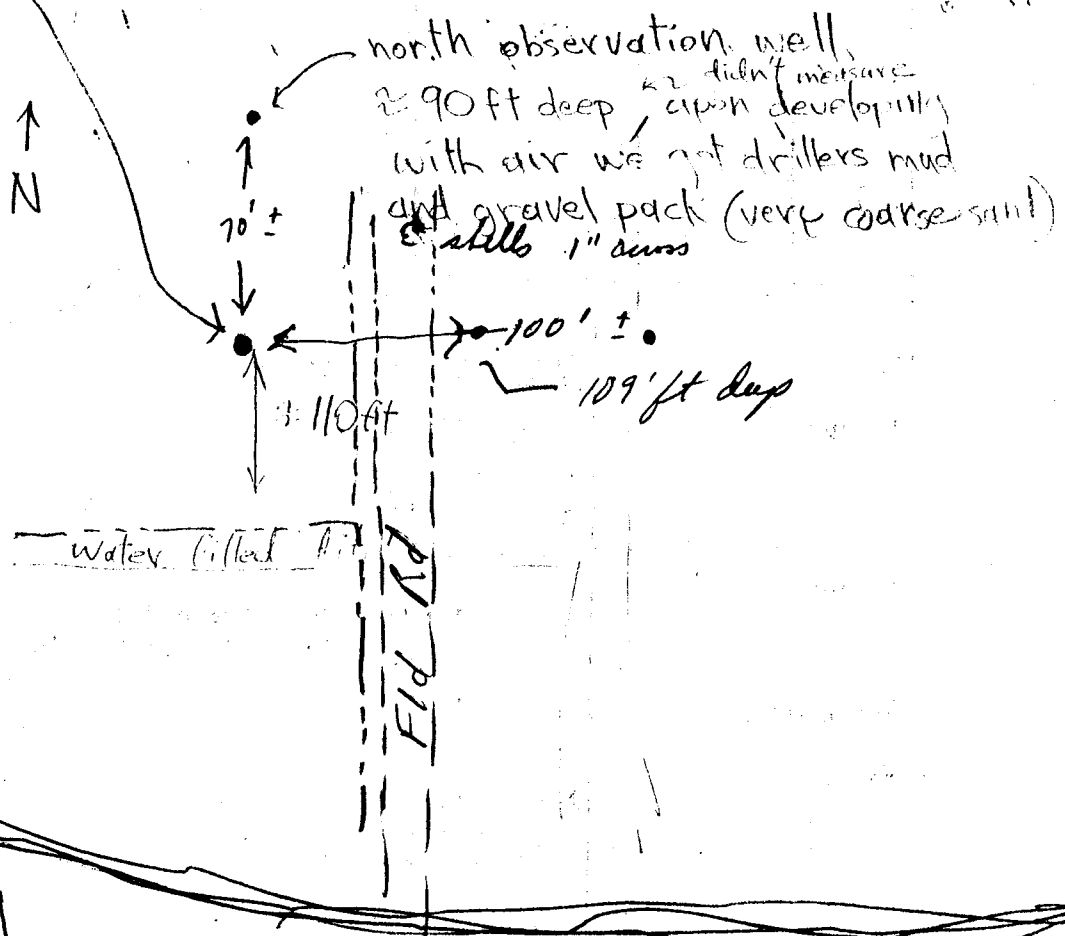 north observation well,
didn't measure
≈ 90 ft deep, upon developing
with air we got drillers mud
and gravel pack (very coarse sand)
& shells 1" across
N
70' ±
100' ±
109' ft deep
± 110 ft
Water filled Pit
Fld Rd